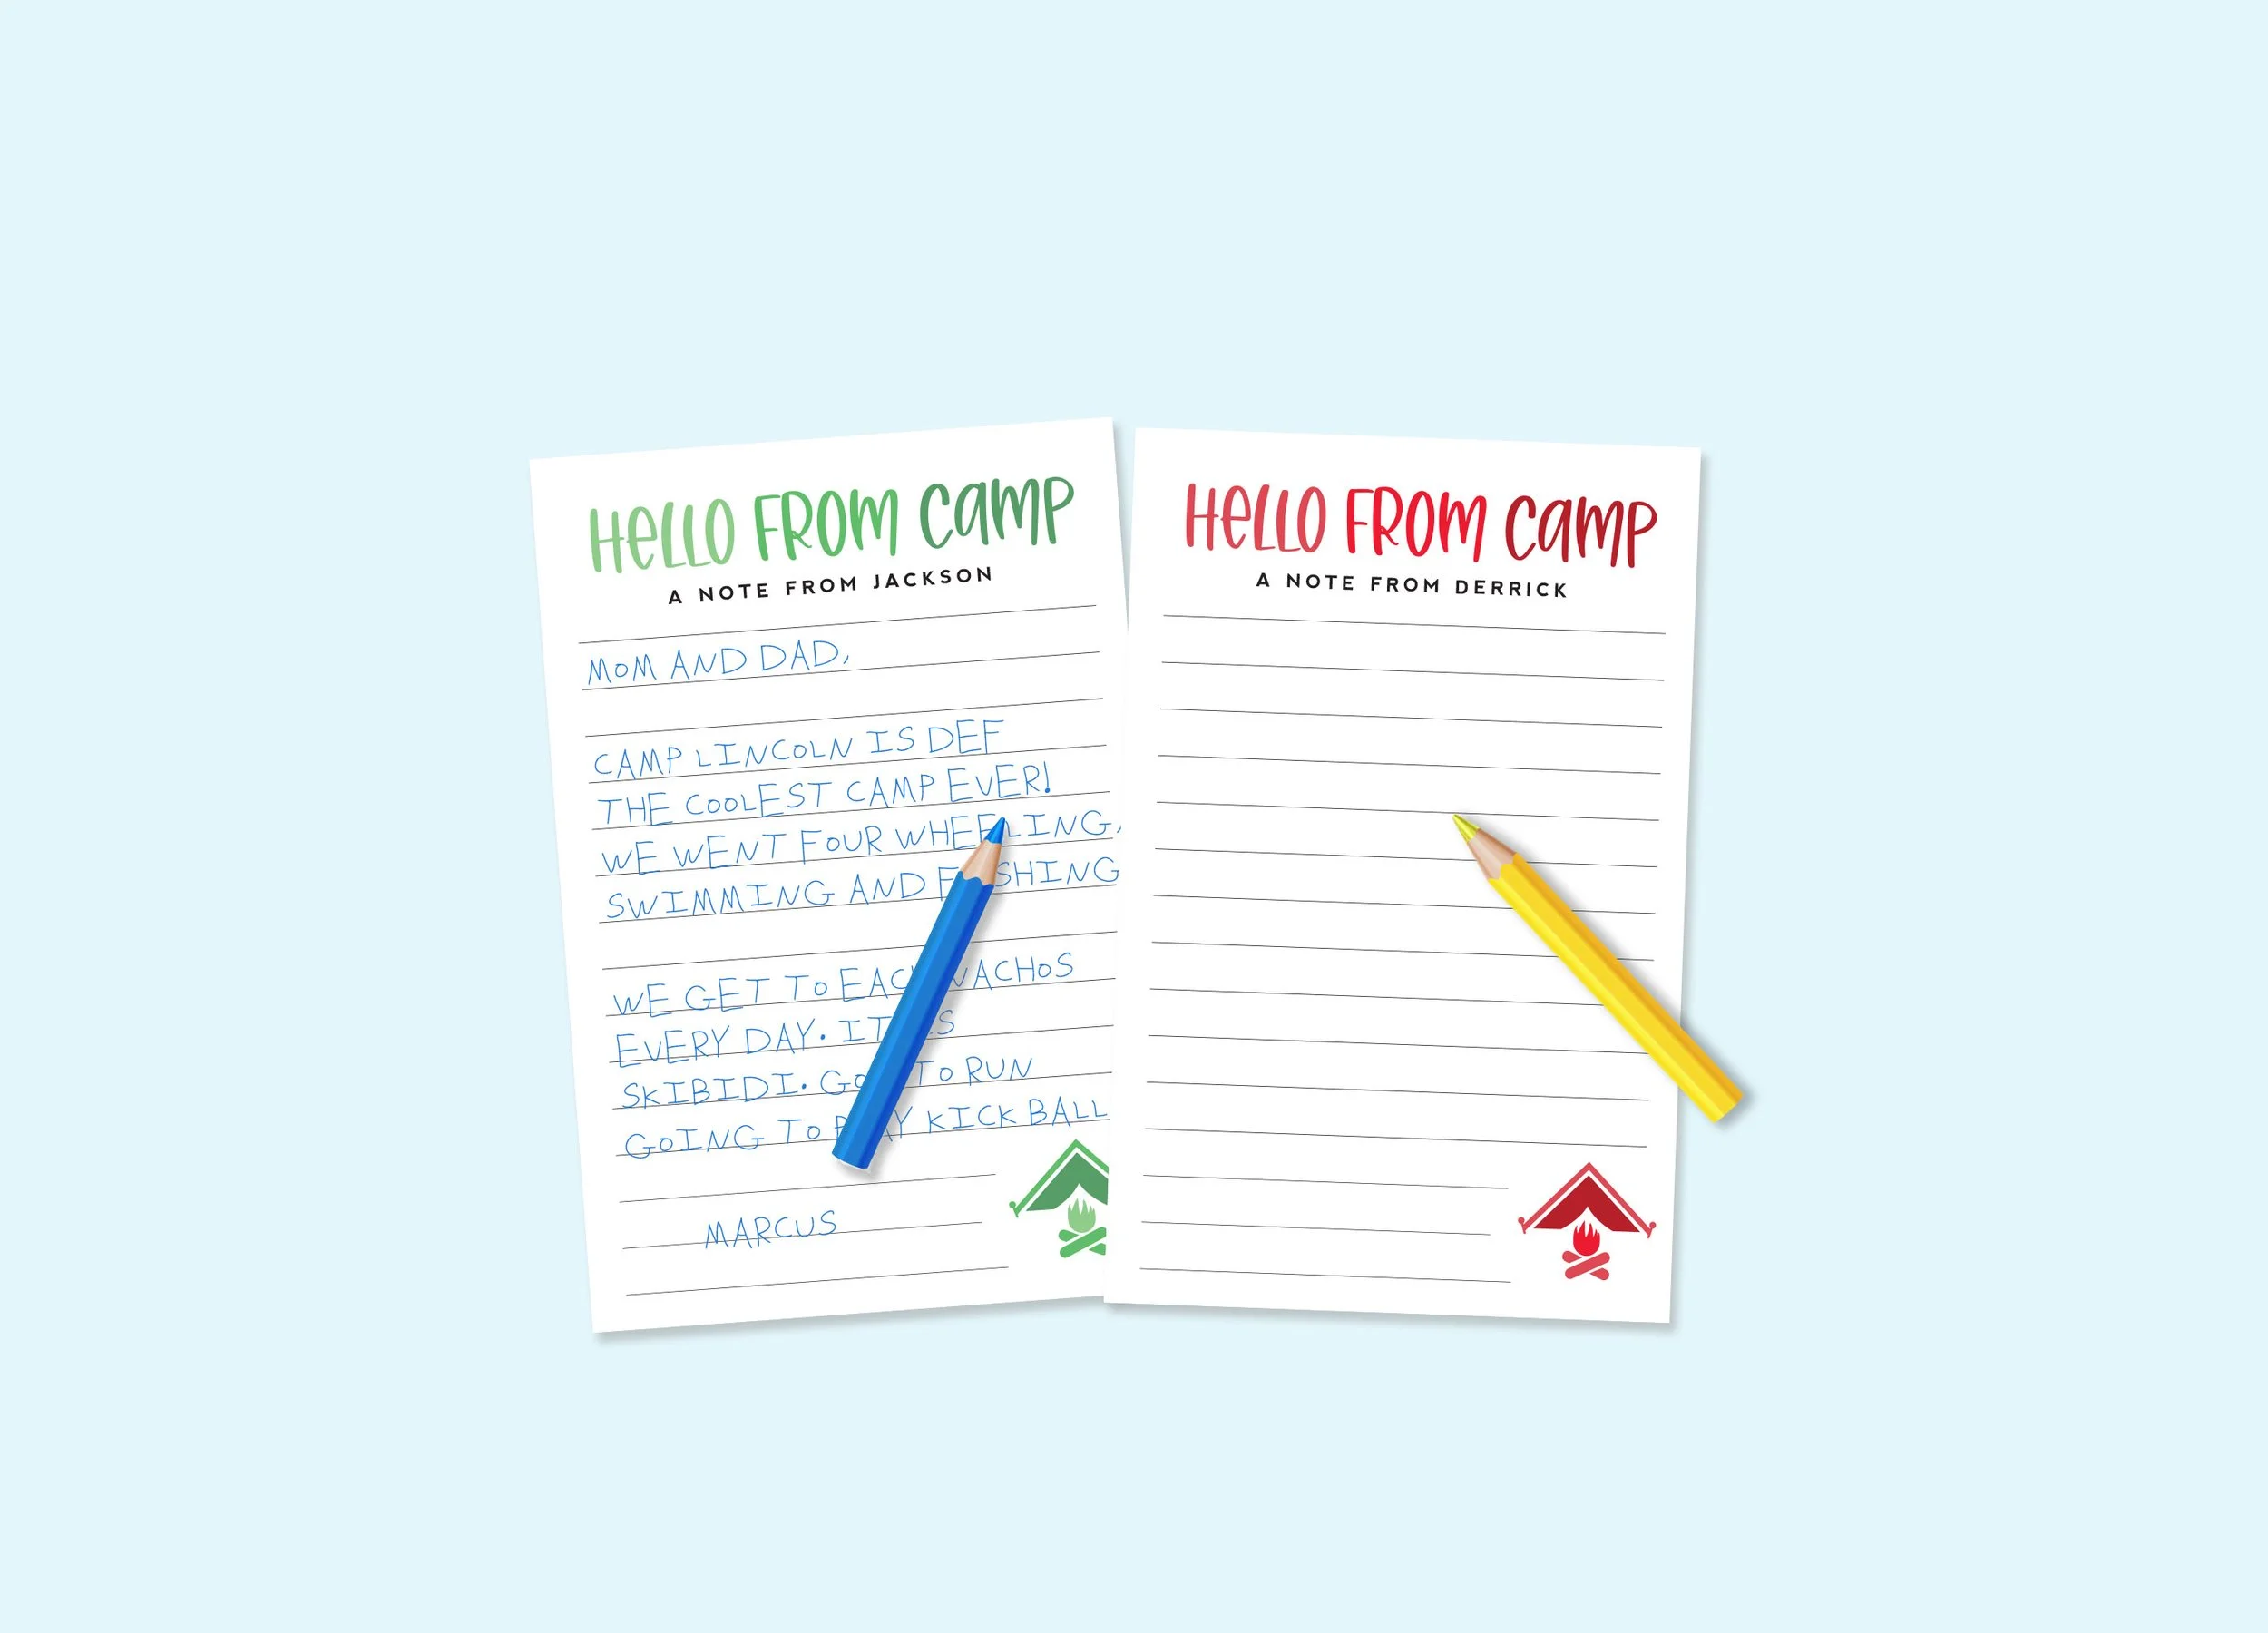 HELLO FROM CAMP
A NOTE FROM JACKSON
MOM AND DAD,
CAMP LINCOLN IS DEF
THE COOLEST CAMP EVER!
WE WENT FOUR WHEELING,
SWIMMING AND FISHING
WE GET TO NACHOS
EVERY DAY. IT IS
SKIBIDI. TO RUN
GOING TO PLAY KICK BALL
MARCUS
HELLO FROM CAMP
A NOTE FROM DERRICK